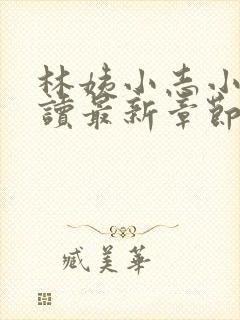 林姨小志小
讀最新章節
臧美華